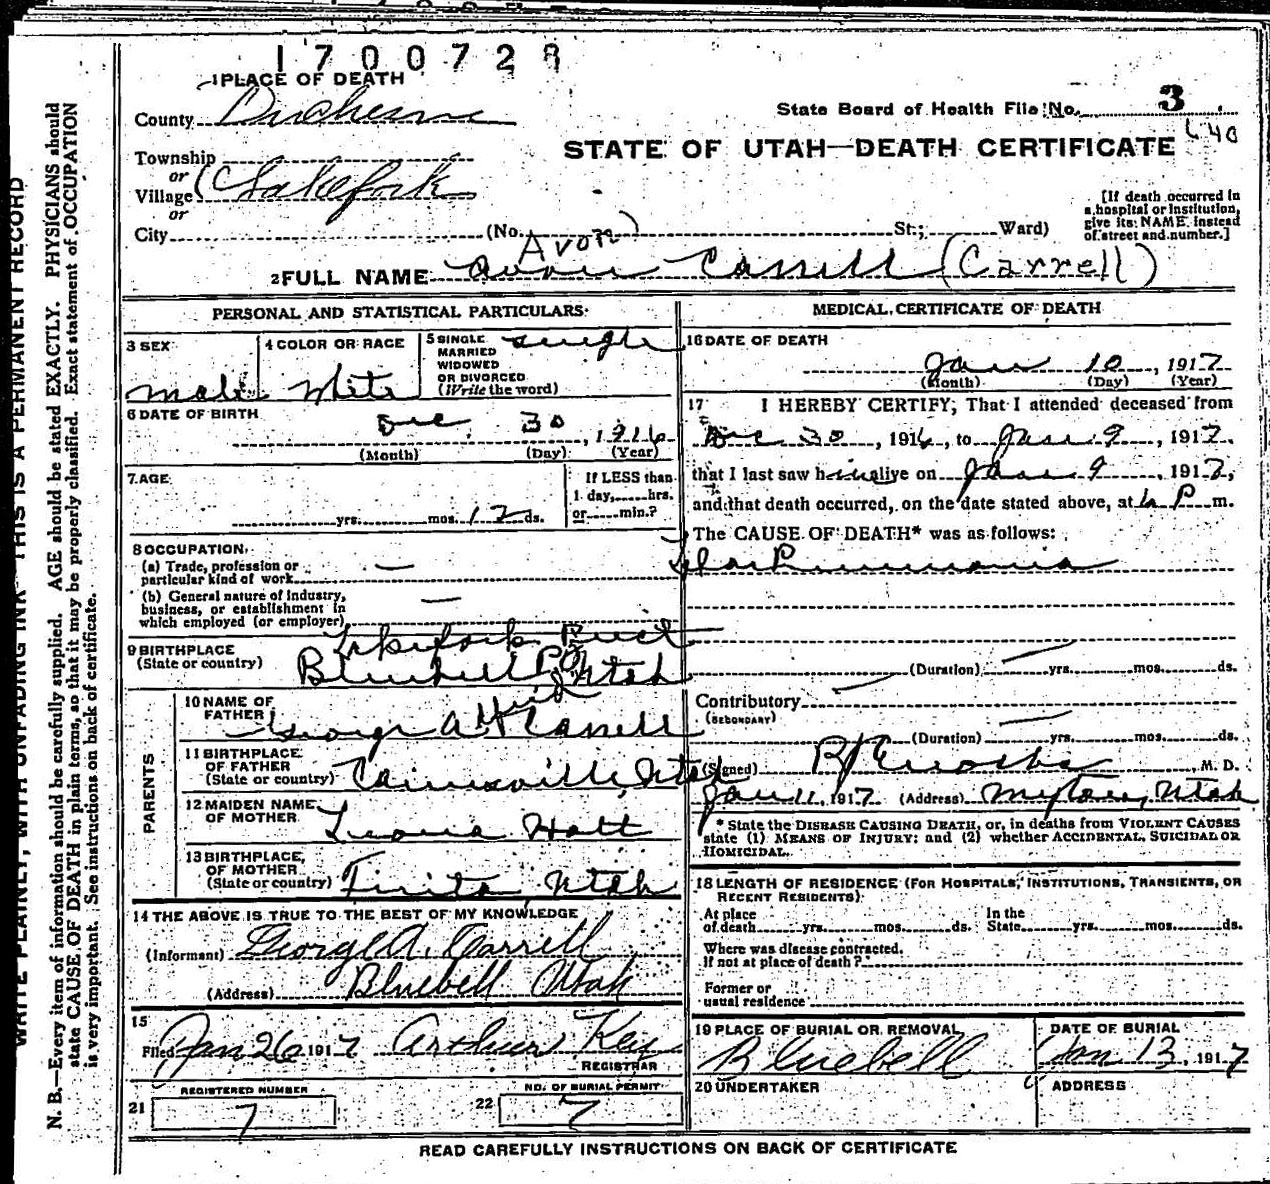 1700728
1 PLACE OF DEATH
County Duchesne
State Board of Health File No. 3
STATE OF UTAH—DEATH CERTIFICATE
Township
or
Village Lakefork
or
City (No. St.; Ward)
[If death occurred in a hospital or institution, give its NAME instead of street and number.]
Avon
2 FULL NAME Carrell (Carrell)
PERSONAL AND STATISTICAL PARTICULARS
3 SEX male
4 COLOR OR RACE White
5 SINGLE MARRIED WIDOWED OR DIVORCED (Write the word) single
6 DATE OF BIRTH Dec 30, 1916
(Month) (Day) (Year)
7 AGE yrs. mos. 12 ds.
If LESS than 1 day, hrs. or min.?
8 OCCUPATION
(a) Trade, profession or particular kind of work —
(b) General nature of industry, business, or establishment in which employed (or employer) —
9 BIRTHPLACE (State or country) Lakefork
Bluebell P.O. Utah
PARENTS
10 NAME OF FATHER George A Carrell
11 BIRTHPLACE OF FATHER (State or country) Cainesville, Utah
12 MAIDEN NAME OF MOTHER Leona Hatt
13 BIRTHPLACE OF MOTHER (State or country) Utah
14 THE ABOVE IS TRUE TO THE BEST OF MY KNOWLEDGE
(Informant) George A. Carrell
(Address) Bluebell Utah
15 Filed Jan 26 1917 Arthur Key
REGISTRAR
REGISTERED NUMBER
21 7
NO. OF BURIAL PERMIT
22 7
MEDICAL CERTIFICATE OF DEATH
16 DATE OF DEATH
Jan 10, 1917
(Month) (Day) (Year)
17 I HEREBY CERTIFY, That I attended deceased from
Dec 30, 1916, to Jan 9, 1917,
that I last saw him alive on Jan 9, 1917,
and that death occurred, on the date stated above, at P m.
The CAUSE OF DEATH* was as follows:
Pneumonia
(Duration) yrs. mos. ds.
Contributory
(SECONDARY)
(Duration) yrs. mos. ds.
(Signed) M. D.
Jan 11, 1917 (Address) Myton, Utah
* State the DISEASE CAUSING DEATH, or, in deaths from VIOLENT CAUSES
state (1) MEANS OF INJURY; and (2) whether ACCIDENTAL, SUICIDAL OR
HOMICIDAL.
18 LENGTH OF RESIDENCE (FOR HOSPITALS, INSTITUTIONS, TRANSIENTS, OR
RECENT RESIDENTS)
At place of death yrs. mos. ds. In the State yrs. mos. ds.
Where was disease contracted,
If not at place of death?
Former or
usual residence
19 PLACE OF BURIAL OR REMOVAL Bluebell
DATE OF BURIAL Jan 13, 1917
20 UNDERTAKER
ADDRESS
READ CAREFULLY INSTRUCTIONS ON BACK OF CERTIFICATE
WRITE PLAINLY, WITH UNFADING INK—THIS IS A PERMANENT RECORD
N. B.—Every item of information should be carefully supplied. AGE should be stated EXACTLY. PHYSICIANS should
state CAUSE OF DEATH in plain terms, so that it may be properly classified. Exact statement of OCCUPATION
is very important. See instructions on back of certificate.